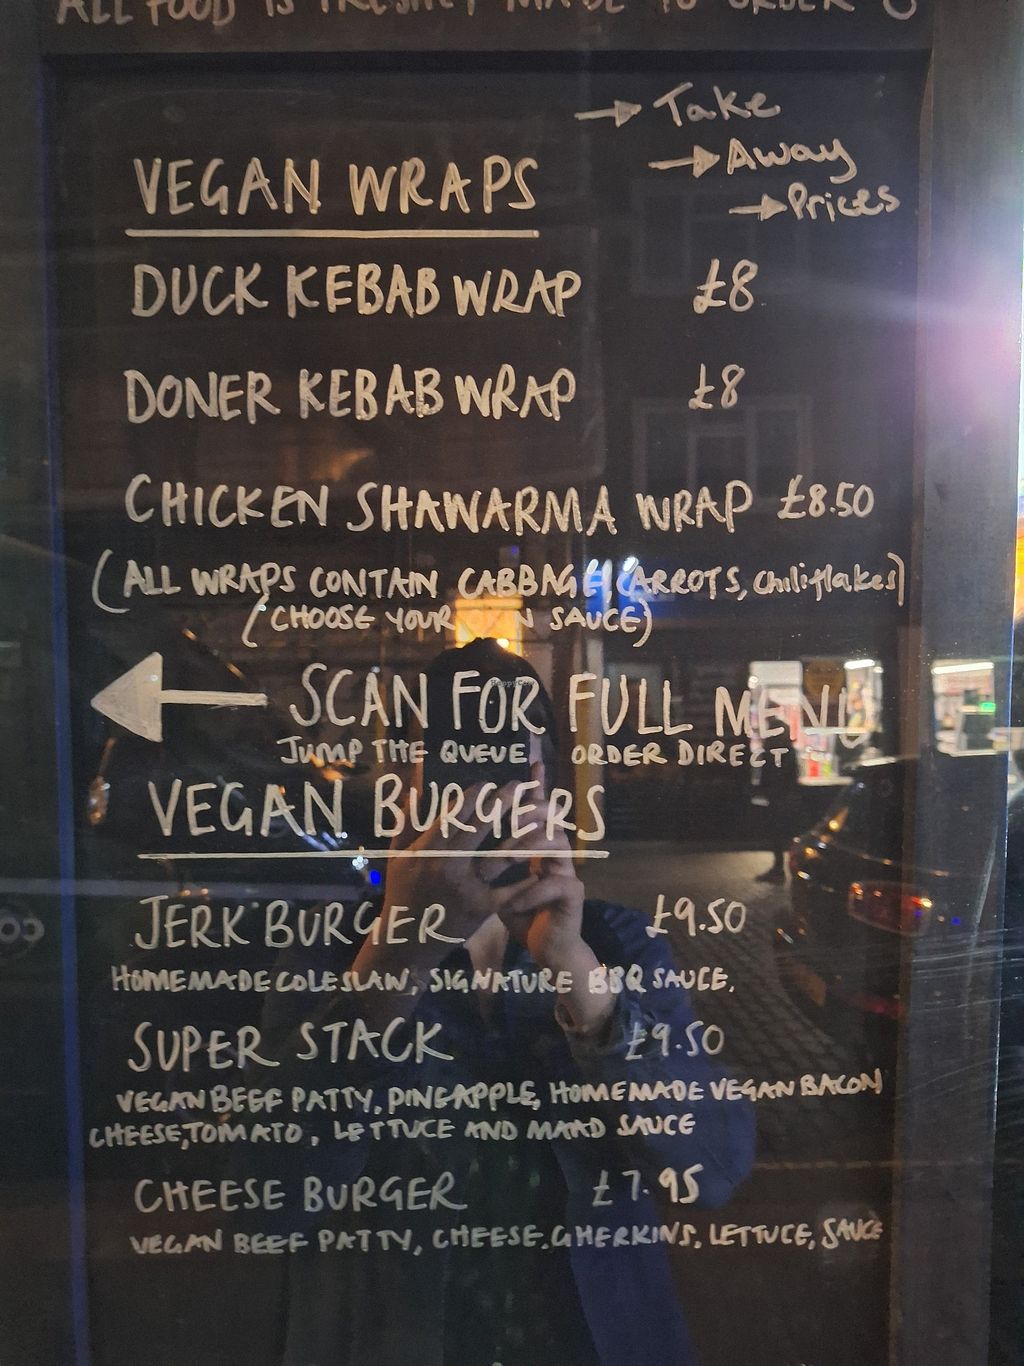 ALL FOOD IS FRESHLY MADE TO ORDER
→ Take
→ Away
→ Prices
VEGAN WRAPS
DUCK KEBAB WRAP £8
DONER KEBAB WRAP £8
CHICKEN SHAWARMA WRAP £8.50
(ALL WRAPS CONTAIN CABBAGE, CARROTS, chiliflakes)
(CHOOSE YOUR OWN SAUCE)
SCAN FOR FULL MENU
JUMP THE QUEUE ORDER DIRECT
VEGAN BURGERS
JERK BURGER £9.50
HOMEMADE COLESLAW, SIGNATURE BBQ SAUCE.
SUPER STACK £9.50
VEGAN BEEF PATTY, PINEAPPLE, HOMEMADE VEGAN BACON
CHEESE, TOMATO, LETTUCE AND SAUCE
CHEESE BURGER £7.95
VEGAN BEEF PATTY, CHEESE, GHERKINS, LETTUCE, SAUCE